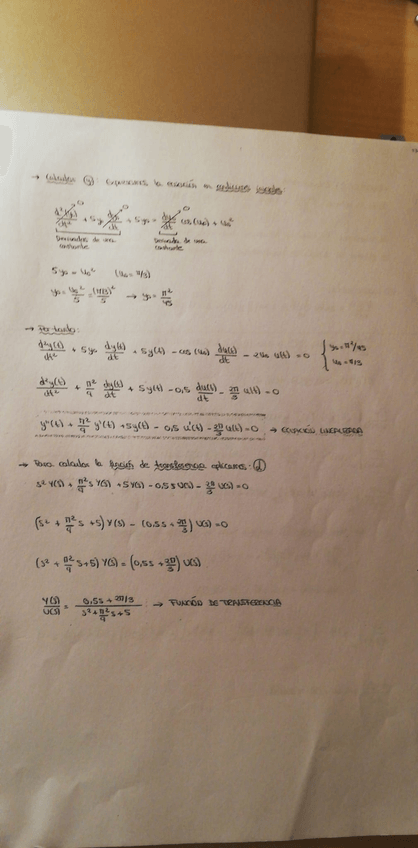 → Calculos (y₀): Expresamos la ecuación en condiciones iniciales:
d²(y₀)/dt² + 5y₀ dy₀/dt + 5y₀ = du₀/dt cos(u₀) + u₀²
Derivadas de una constante
Derivada de una constante
5y₀ = u₀² (u₀ = π/3)
y₀ = u₀²/5 = (π/3)²/5 → y₀ = π²/45
→ Por tanto:
d²y(t)/dt² + 5y₀ dy(t)/dt + 5y(t) - cos(u₀) du(t)/dt - 2u₀ u(t) = 0 { y₀ = π²/45
u₀ = π/3
d²y(t)/dt² + π²/9 dy(t)/dt + 5y(t) - 0,5 du(t)/dt - 2π/3 u(t) = 0
y''(t) + π²/9 y'(t) + 5y(t) - 0,5 u'(t) - 2π/3 u(t) = 0 → ECUACIÓN LINEALIZADA
→ Para calcular la función de transferencia aplicamos: (L)
s² Y(s) + π²/9 s Y(s) + 5Y(s) - 0,5s U(s) - 2π/3 U(s) = 0
(s² + π²/9 s + 5) Y(s) - (0,5s + 2π/3) U(s) = 0
(s² + π²/9 s + 5) Y(s) = (0,5s + 2π/3) U(s)
Y(s)/U(s) = (0,5s + 2π/3)/(s² + π²/9 s + 5) : → FUNCIÓN DE TRANSFERENCIA